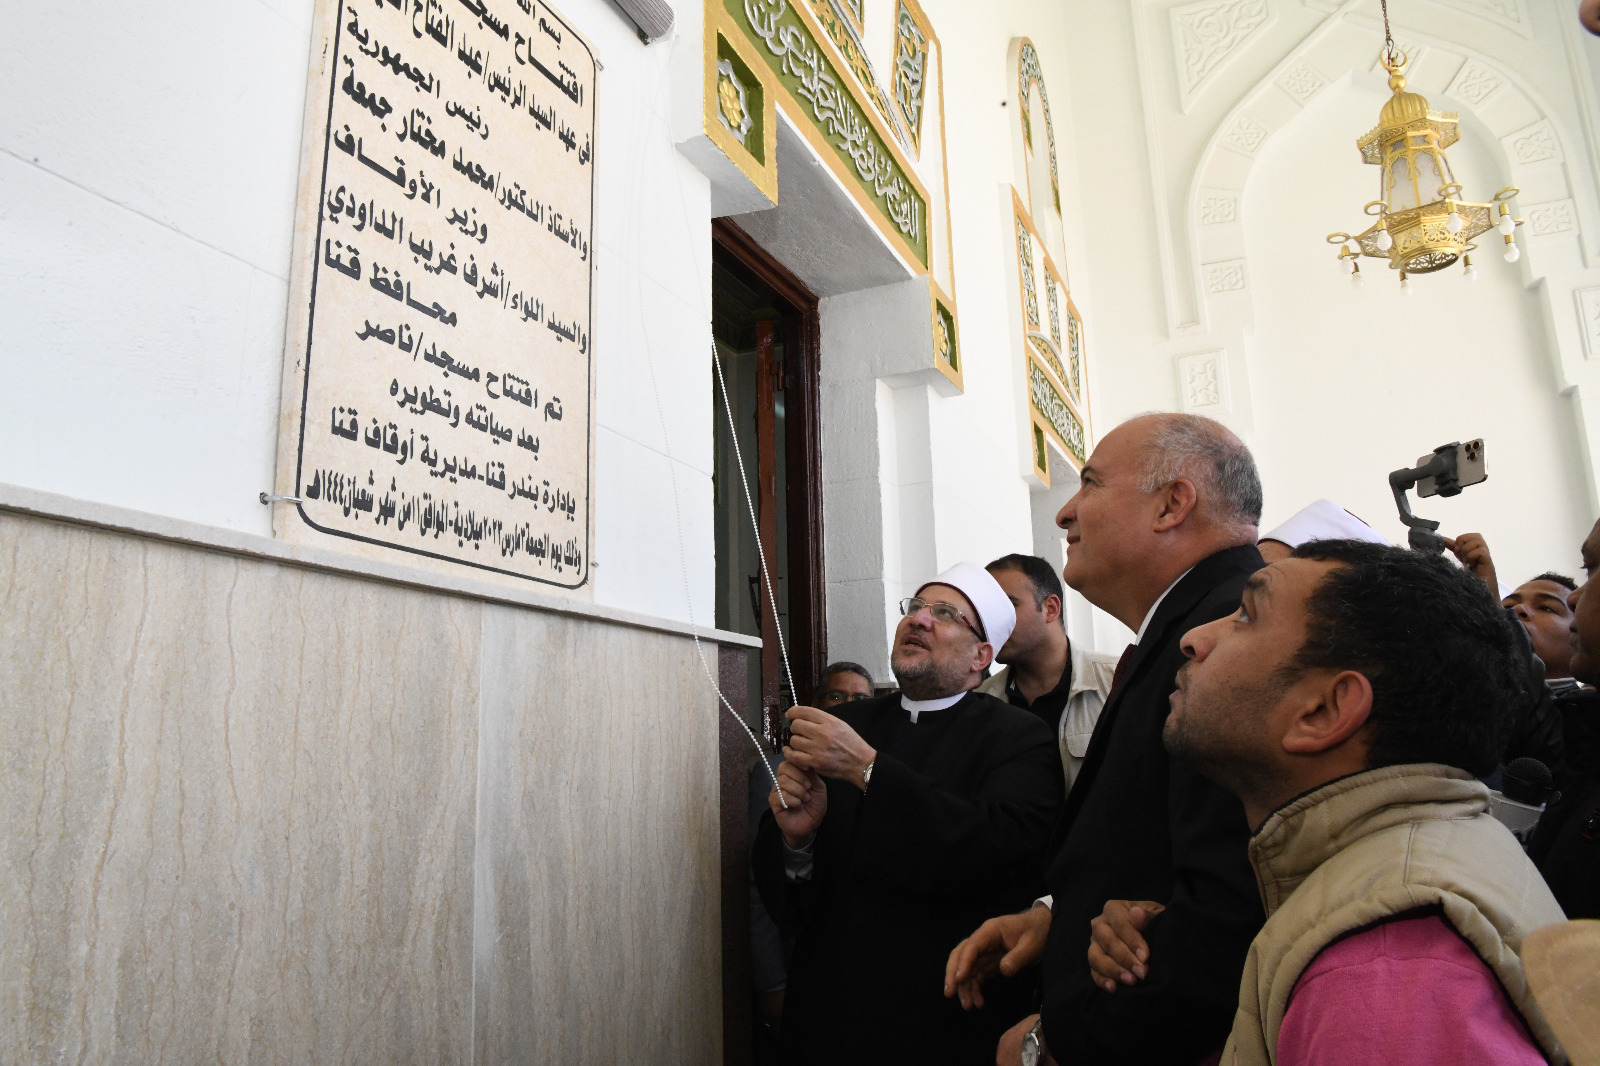 بسم الله
افتتاح مسجد
فى عهد السيد الرئيس/عبد الفتاح
رئيس الجمهورية
والأستاذ الدكتور/محمد مختار جمعة
وزير الأوقاف
والسيد اللواء/أشرف غريب الداودي
محافظ قنا
تم افتتاح مسجد/ناصر
بعد صيانته وتطويره
بإدارة بندر قنا-مديرية أوقاف قنا
وذلك يوم الجمعة ٣مارس٢٠٢٣ميلادية-الموافق١١من شهر شعبان١٤٤٤هـ